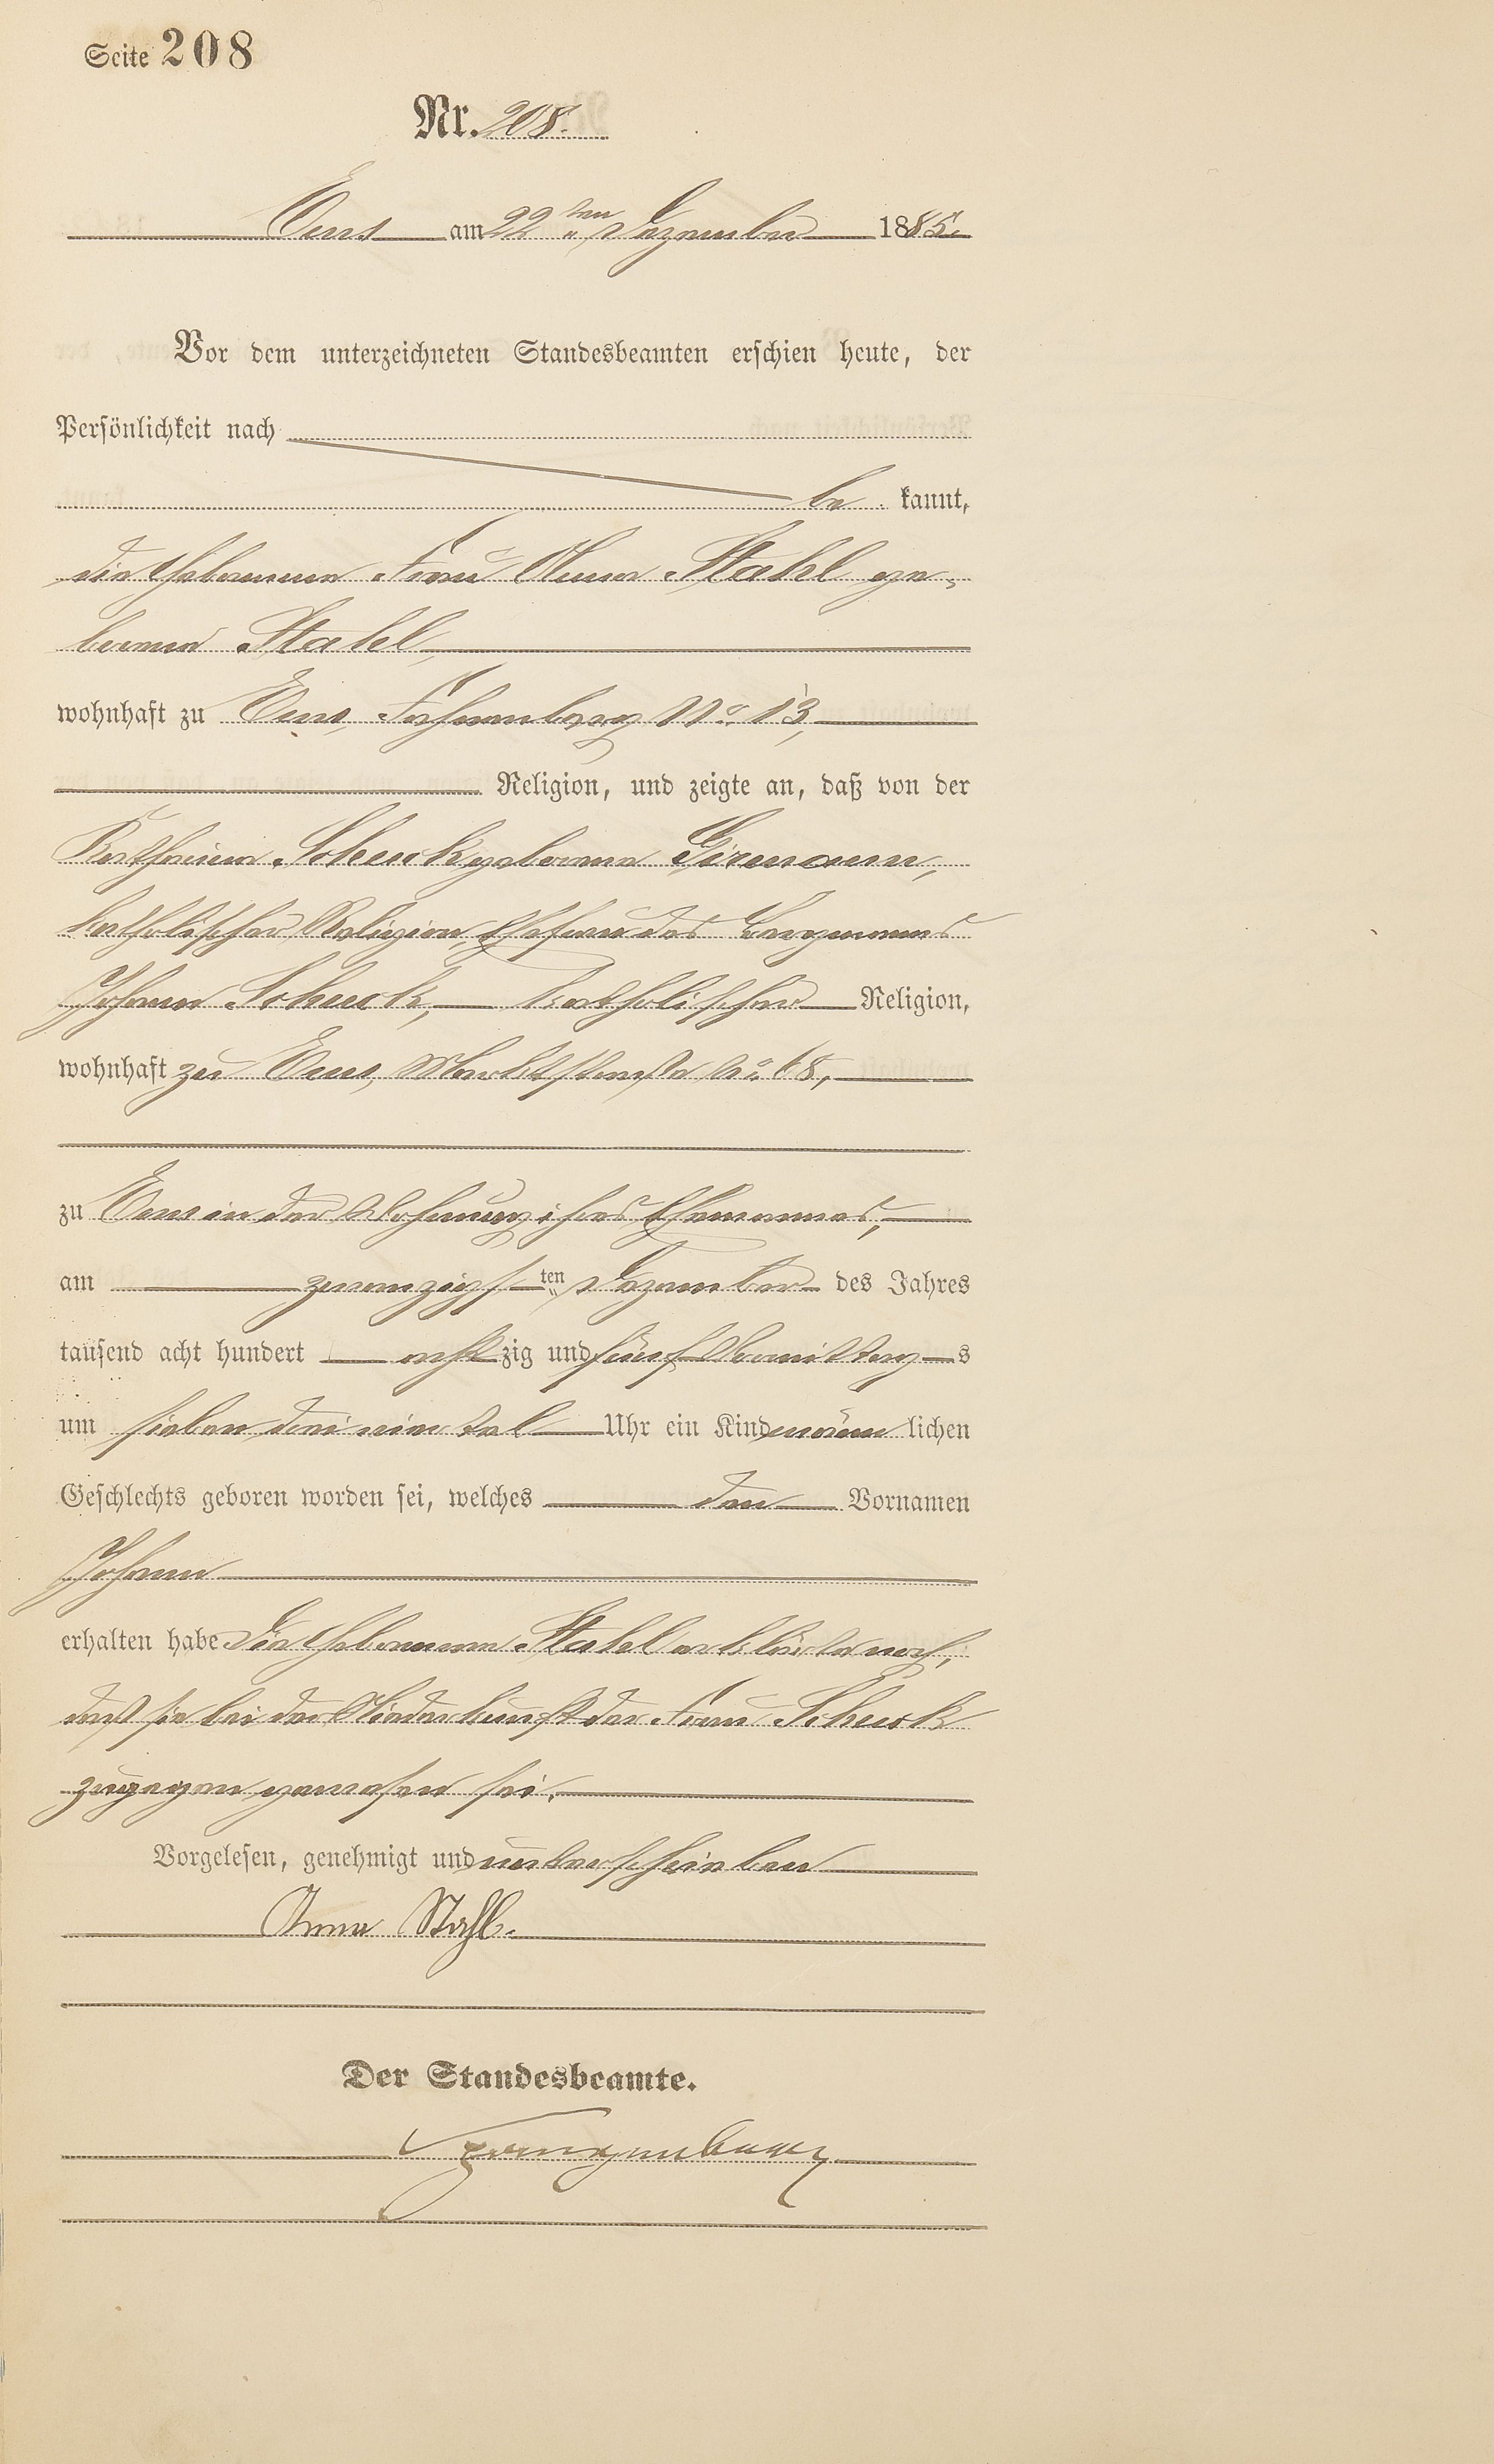 Seite 208
Nr. 208.
Ems am 22ten Dezember 1885.
Vor dem unterzeichneten Standesbeamten erschien heute, der
Persönlichkeit nach
be kannt,
die Hebamme Frau Anna Stahl ge-
borene Stahl,
wohnhaft zu Ems, No. 13,
Religion, und zeigte an, daß von der
Katharina Schenk geborene Girmann,
katholischer Religion, Ehefrau des Bergmanns
Johann Schenk, katholischer Religion,
wohnhaft zu Ems, Marktstraße No. 68,
zu Ems in der Wohnung ihres Ehemannes,
am zwanzigsten Dezember des Jahres
tausend acht hundert achtzig und fünf Vormittags
um sieben drei viertel Uhr ein Kind männlichen
Geschlechts geboren worden sei, welches den Vornamen
Johann
erhalten habe Die Hebamme Stahl erklärte noch,
daß sie bei der Niederkunft der Frau Schenk
zugegen gewesen sei.
Vorgelesen, genehmigt und unterschrieben
Anna Stahl.
Der Standesbeamte.
Spangenberg